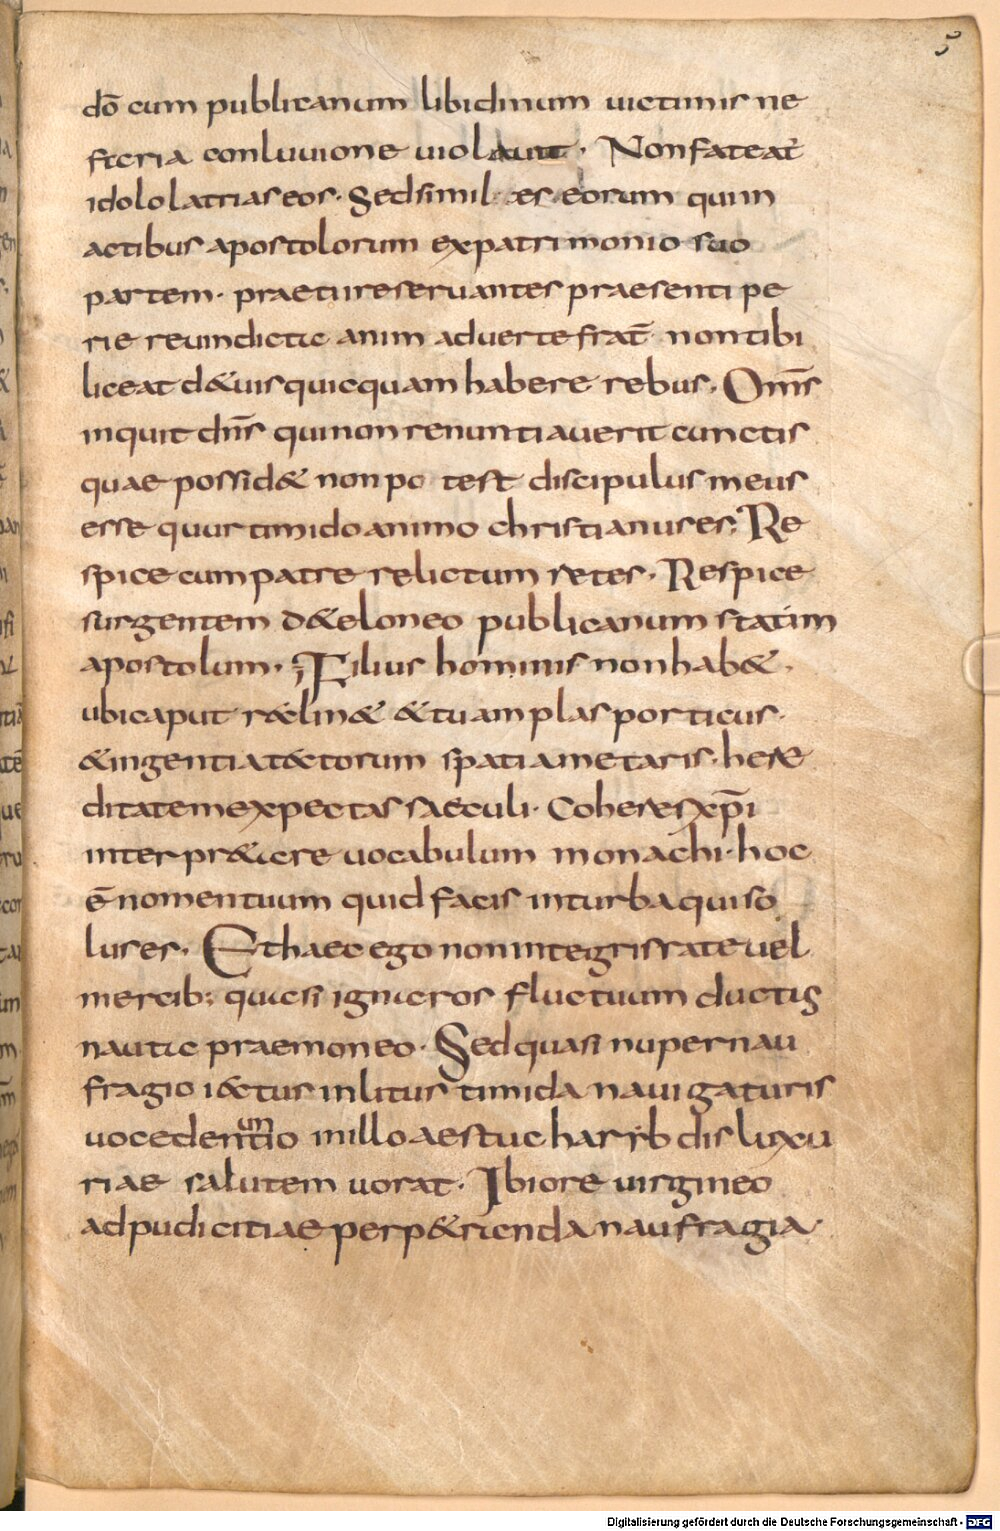 5
dō cum publicanum libidinum uictimis ne
fteria conluuione uiolauit. Non fateat̄
idololatrias eos. Sed simil æs eorum qui in
actibus apostolorum ex patrimonio suo
partem. praetii reseruantes praesenti pe
rie reuindictic anim aduerte frat̄ non tibi
liceat d&uis quicquam habere rebus. Omīs
inquit dn̄s qui non renuntiauerit cunctis
quae possid& non po test discipulus meus
esse quur timido animo christianus es; Re
spice cum patre relictum retes. Respice
surgentem d& eloneo publicanum statim
apostolum. Filius hominis non hab&.
ubi caput r&clin& &tu amplas porticus.
&ingentia t&ctorum spatia metaris. here
ditatem expectas saeculi. Coheres xp̄i
interpr&cre uocabulum monachi. hoc
ē nomen tuum quid facis in turba qui so
lus es. Et haec ego non integris rate uel
mercib; quiesi ignicros fluctuum ductis
nautic praemoneo. Sed quasi nuper nau
fragio i&ctus in litus timida nauigaturis
uoce dentiō um in illo aestuc harẏb dis luxu
riae salutem uorat. Ibi ore uirgineo
ad pudicitiae perp&rienda naufragia.
Digitalisierung gefördert durch die Deutsche Forschungsgemeinschaft - DFG